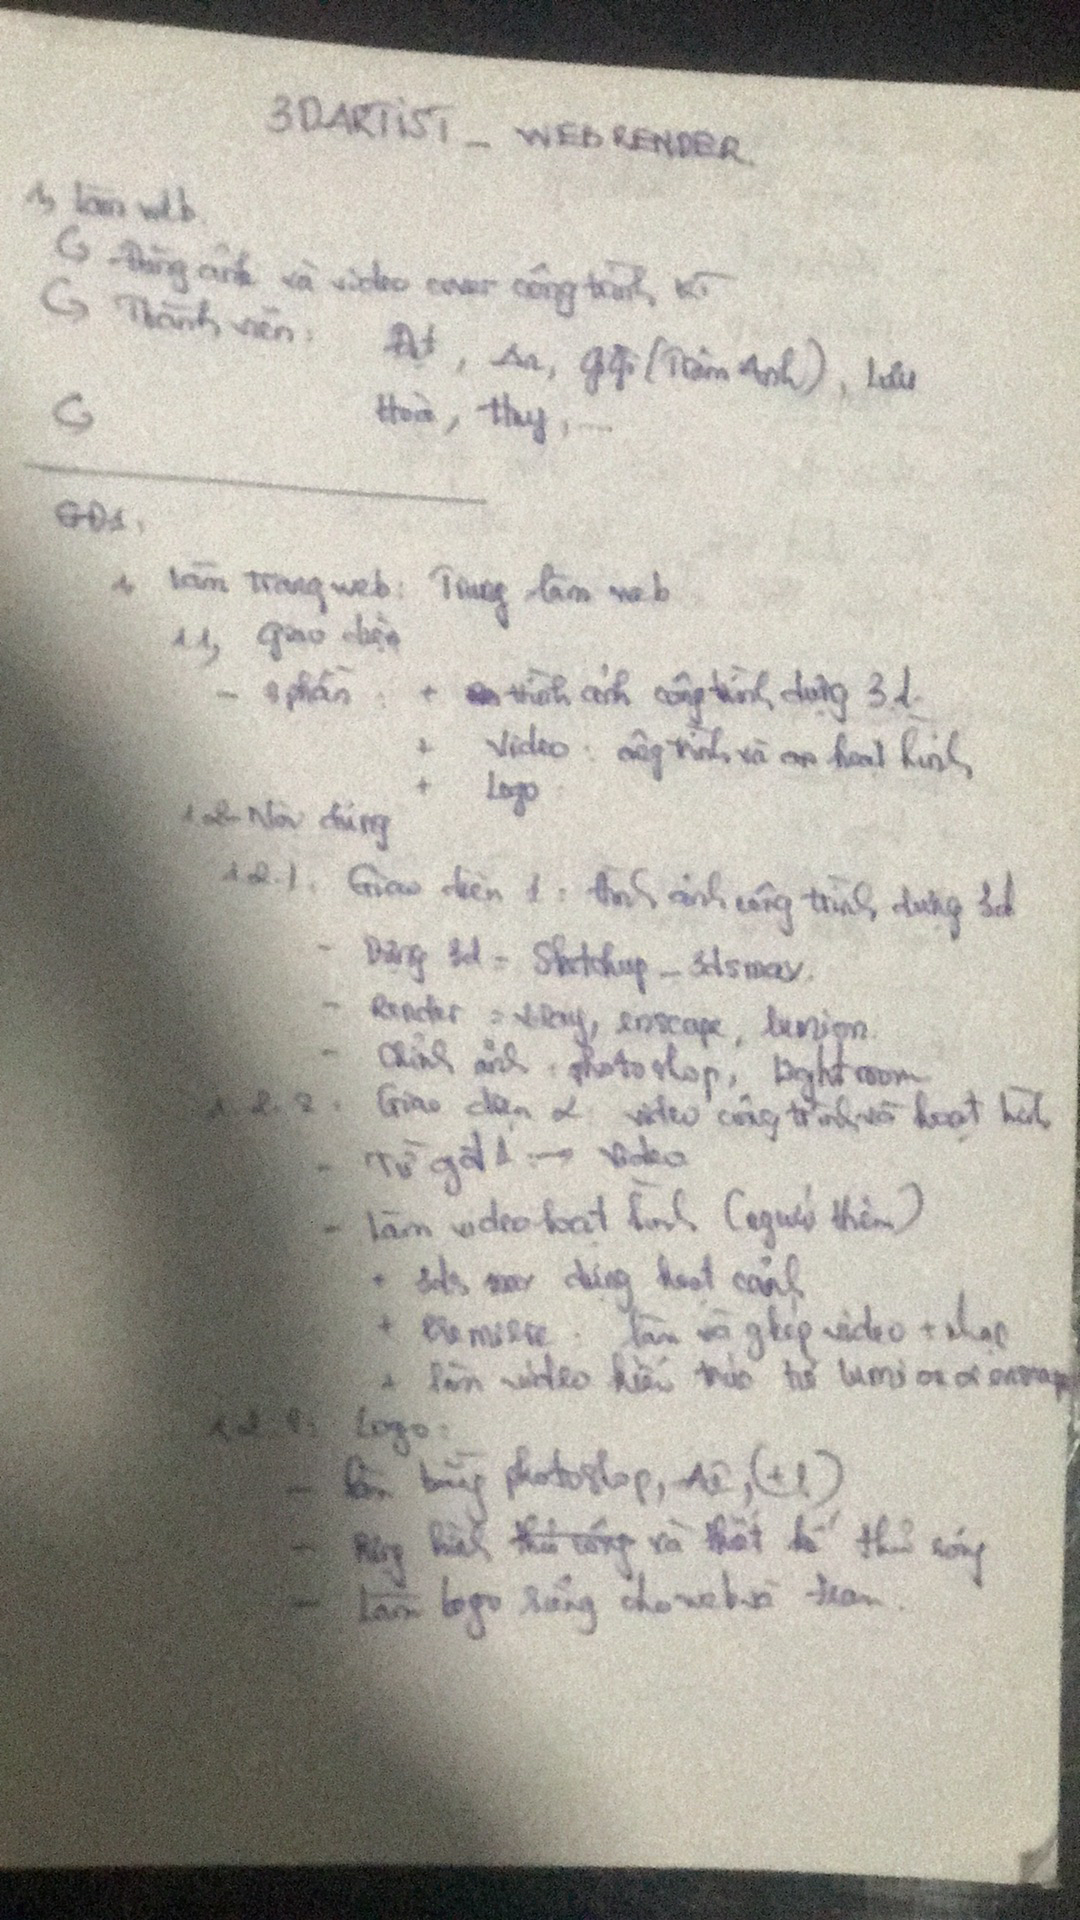 3DARTIST_ WEBRENDER.
1, Làm web.
Đăng ảnh và video cover công trình KT
Thành viên: Đạt, An, (Trâm Anh), Lưu
Hoà, Huy, ...
GĐ1.
1, Làm trang web: Trung làm web
1.1, Giao diện
- 3 phần: + Hình ảnh công trình dựng 3d.
+ Video: công trình và hoạt hình
+ Logo
1.2. Nội dung
1.2.1. Giao diện 1: Hình ảnh công trình dựng 3d
- Dựng 3d = Sketchup _ 3dsmax.
- Render = Vray, enscape, lumion.
- Chỉnh ảnh: photoshop, lightroom
1.2.2. Giao diện 2: video công trình và hoạt hình
- Từ gđ 1 → video
- Làm video hoạt hình (người thêm)
+ 3ds max dựng hoạt cảnh
+ Premiere: làm và ghép video + nhạc
+ Làm video kiến trúc từ lumion enscape
1.2.3. Logo:
- Làm bằng photoshop, Ai, (±1)
- hình thủ công và thiết kế thủ công
- Làm logo riêng cho web và team.